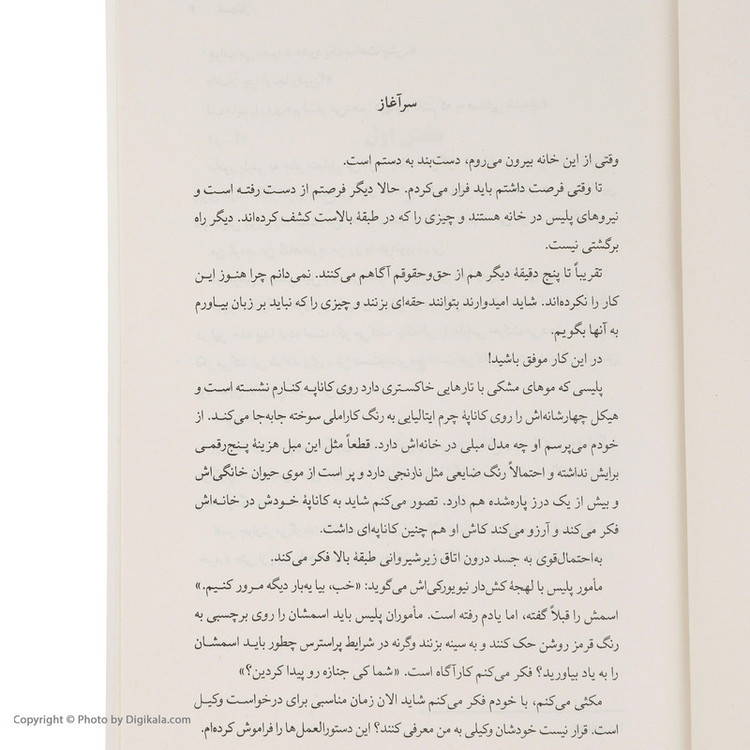 سرآغاز
وقتی از این خانه بیرون می‌روم، دست‌بند به دستم است.
تا وقتی فرصت داشتم باید فرار می‌کردم. حالا دیگر فرصتم از دست رفته است و
نیروهای پلیس در خانه هستند و چیزی را که در طبقهٔ بالاست کشف کرده‌اند. دیگر راه
برگشتی نیست.
تقریباً تا پنج دقیقهٔ دیگر هم از حق‌وحقوقم آگاهم می‌کنند. نمی‌دانم چرا هنوز این
کار را نکرده‌اند. شاید امیدوارند بتوانند حقه‌ای بزنند و چیزی را که نباید بر زبان بیاورم
به آنها بگویم.
در این کار موفق باشید!
پلیسی که موهای مشکی با تارهایی خاکستری دارد روی کاناپه کنارم نشسته است و
هیکل چهارشانه‌اش را روی کاناپهٔ چرم ایتالیایی به رنگ کاراملی سوخته جابه‌جا می‌کند. از
خودم می‌پرسم او چه مدل مبلی در خانه‌اش دارد. قطعاً مثل این مبل هزینهٔ پنج‌رقمی
برایش نداشته و احتمالاً رنگ ضایعی مثل نارنجی دارد و پر است از موی حیوان خانگی‌اش
و بیش از یک درز پاره‌شده هم دارد. تصور می‌کنم شاید به کاناپهٔ خودش در خانه‌اش
فکر می‌کند و آرزو می‌کند کاش او هم چنین کاناپه‌ای داشت.
به‌احتمال‌قوی به جسد درون اتاق زیرشیروانی طبقهٔ بالا فکر می‌کند.
مأمور پلیس با لهجهٔ کش‌دار نیویورکی‌اش می‌گوید: «خب، بیا یه‌بار دیگه مرور کنیم.»
اسمش را قبلاً گفته، اما یادم رفته است. مأموران پلیس باید اسمشان را روی برچسبی به
رنگ قرمز روشن حک کنند و به سینه بزنند وگرنه در شرایط پراسترس چطور باید اسمشان
را به یاد بیاورید؟ فکر می‌کنم کارآگاه است. «شما کی جنازه رو پیدا کردین؟»
مکثی می‌کنم، با خودم فکر می‌کنم شاید الان زمان مناسبی برای درخواست وکیل
است. قرار نیست خودشان وکیلی به من معرفی کنند؟ این دستورالعمل‌ها را فراموش کرده‌ام.
Copyright © Photo by Digikala.com